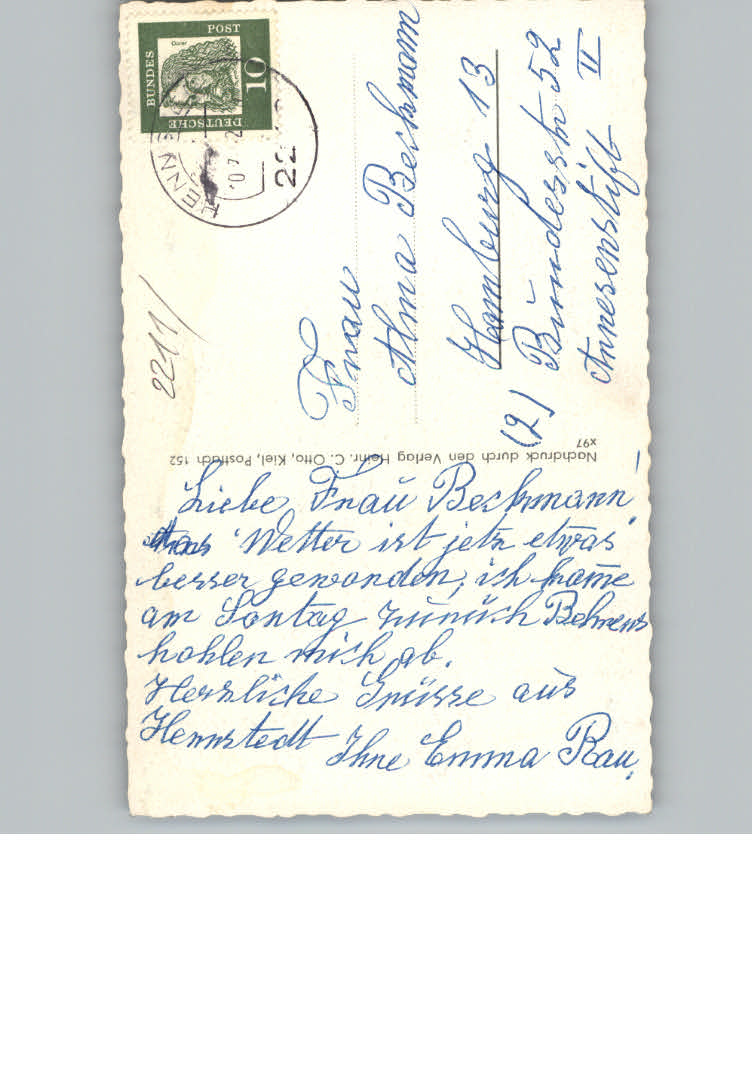 Liebe Frau Beckmann!
das Wetter ist jetz etwas
besser geworden, ich komme
am Sontag zurück Behrens
hohlen mich ab.
Herzliche Grüsse aus
Hennstedt Ihre Emma Rau.
Frau
Alma Beckmann
Hamburg 13
(2) Bundesstr 52
II
Annenstift
2211/
Nachdruck durch den Verlag Heinr. C. Otto, Kiel, Postfach 152
x97
DEUTSCHE
BUNDES
POST
Dürer
10
HENN
22